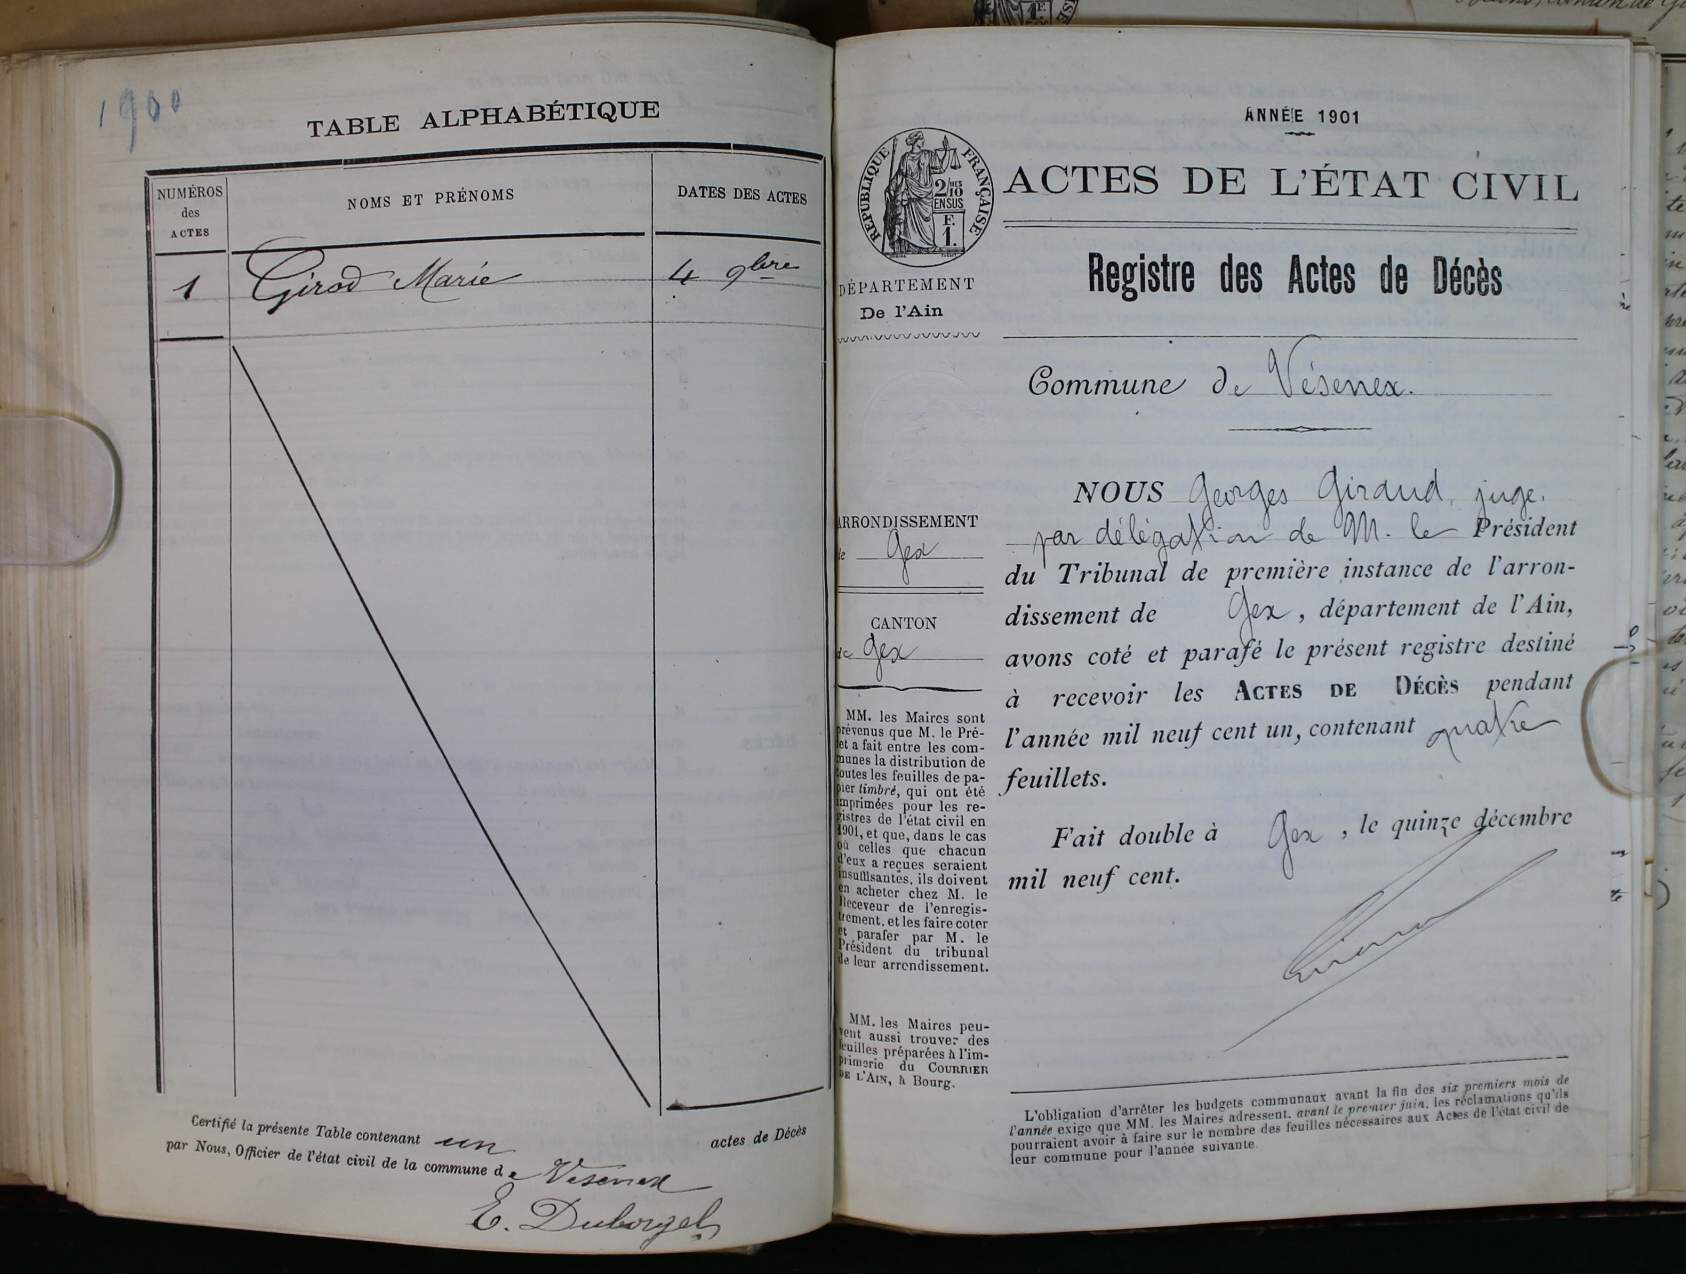 1900
TABLE ALPHABÉTIQUE
NUMÉROS
des
ACTES
NOMS ET PRÉNOMS
DATES DES ACTES
1
Girod Marie
4 9bre
Certifié la présente Table contenant un
actes de Décès
par Nous, Officier de l'état civil de la commune de Vésenex
E. Duborgel
ANNÉE 1901
RÉPUBLIQUE FRANÇAISE
2/10
EN SUS
F.
1.
ACTES DE L'ÉTAT CIVIL
Registre des Actes de Décès
DÉPARTEMENT
De l'Ain
Commune de Vésenex.
ARRONDISSEMENT
de Gex
CANTON
de Gex
MM. les Maires sont
prévenus que M. le Pré-
fet a fait entre les com-
munes la distribution de
toutes les feuilles de pa-
pier timbré, qui ont été
imprimées pour les re-
gistres de l'état civil en
1901, et que, dans le cas
où celles que chacun
d'eux a reçues seraient
insuffisantes, ils doivent
en acheter chez M. le
Receveur de l'enregis-
trement, et les faire coter
et parafer par M. le
Président du tribunal
de leur arrondissement.
MM. les Maires peu-
vent aussi trouver des
feuilles préparées à l'im-
primerie du COURRIER
DE L'AIN, à Bourg.
NOUS Georges Giraud, juge.
par délégation de M. le Président
du Tribunal de première instance de l'arron-
dissement de Gex, département de l'Ain,
avons coté et parafé le présent registre destiné
à recevoir les ACTES DE DÉCÈS pendant
l'année mil neuf cent un, contenant quatre
feuillets.
Fait double à Gex, le quinze décembre
mil neuf cent.
L'obligation d'arrêter les budgets communaux avant la fin des six premiers mois de
l'année exige que MM. les Maires adressent, avant le premier juin, les réclamations qu'ils
pourraient avoir à faire sur le nombre des feuilles nécessaires aux Actes de l'état civil de
leur commune pour l'année suivante.